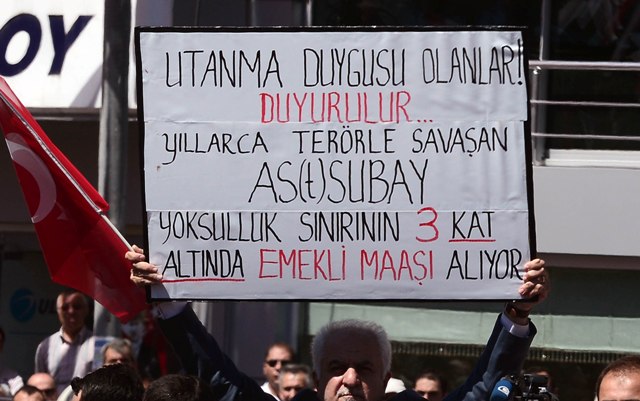 OY
UTANMA DUYGUSU OLANLAR!
DUYURULUR...
YILLARCA TERÖRLE SAVAŞAN
AS(t)SUBAY
YOKSULLUK SINIRININ 3 KAT
ALTINDA EMEKLİ MAAŞI ALIYOR